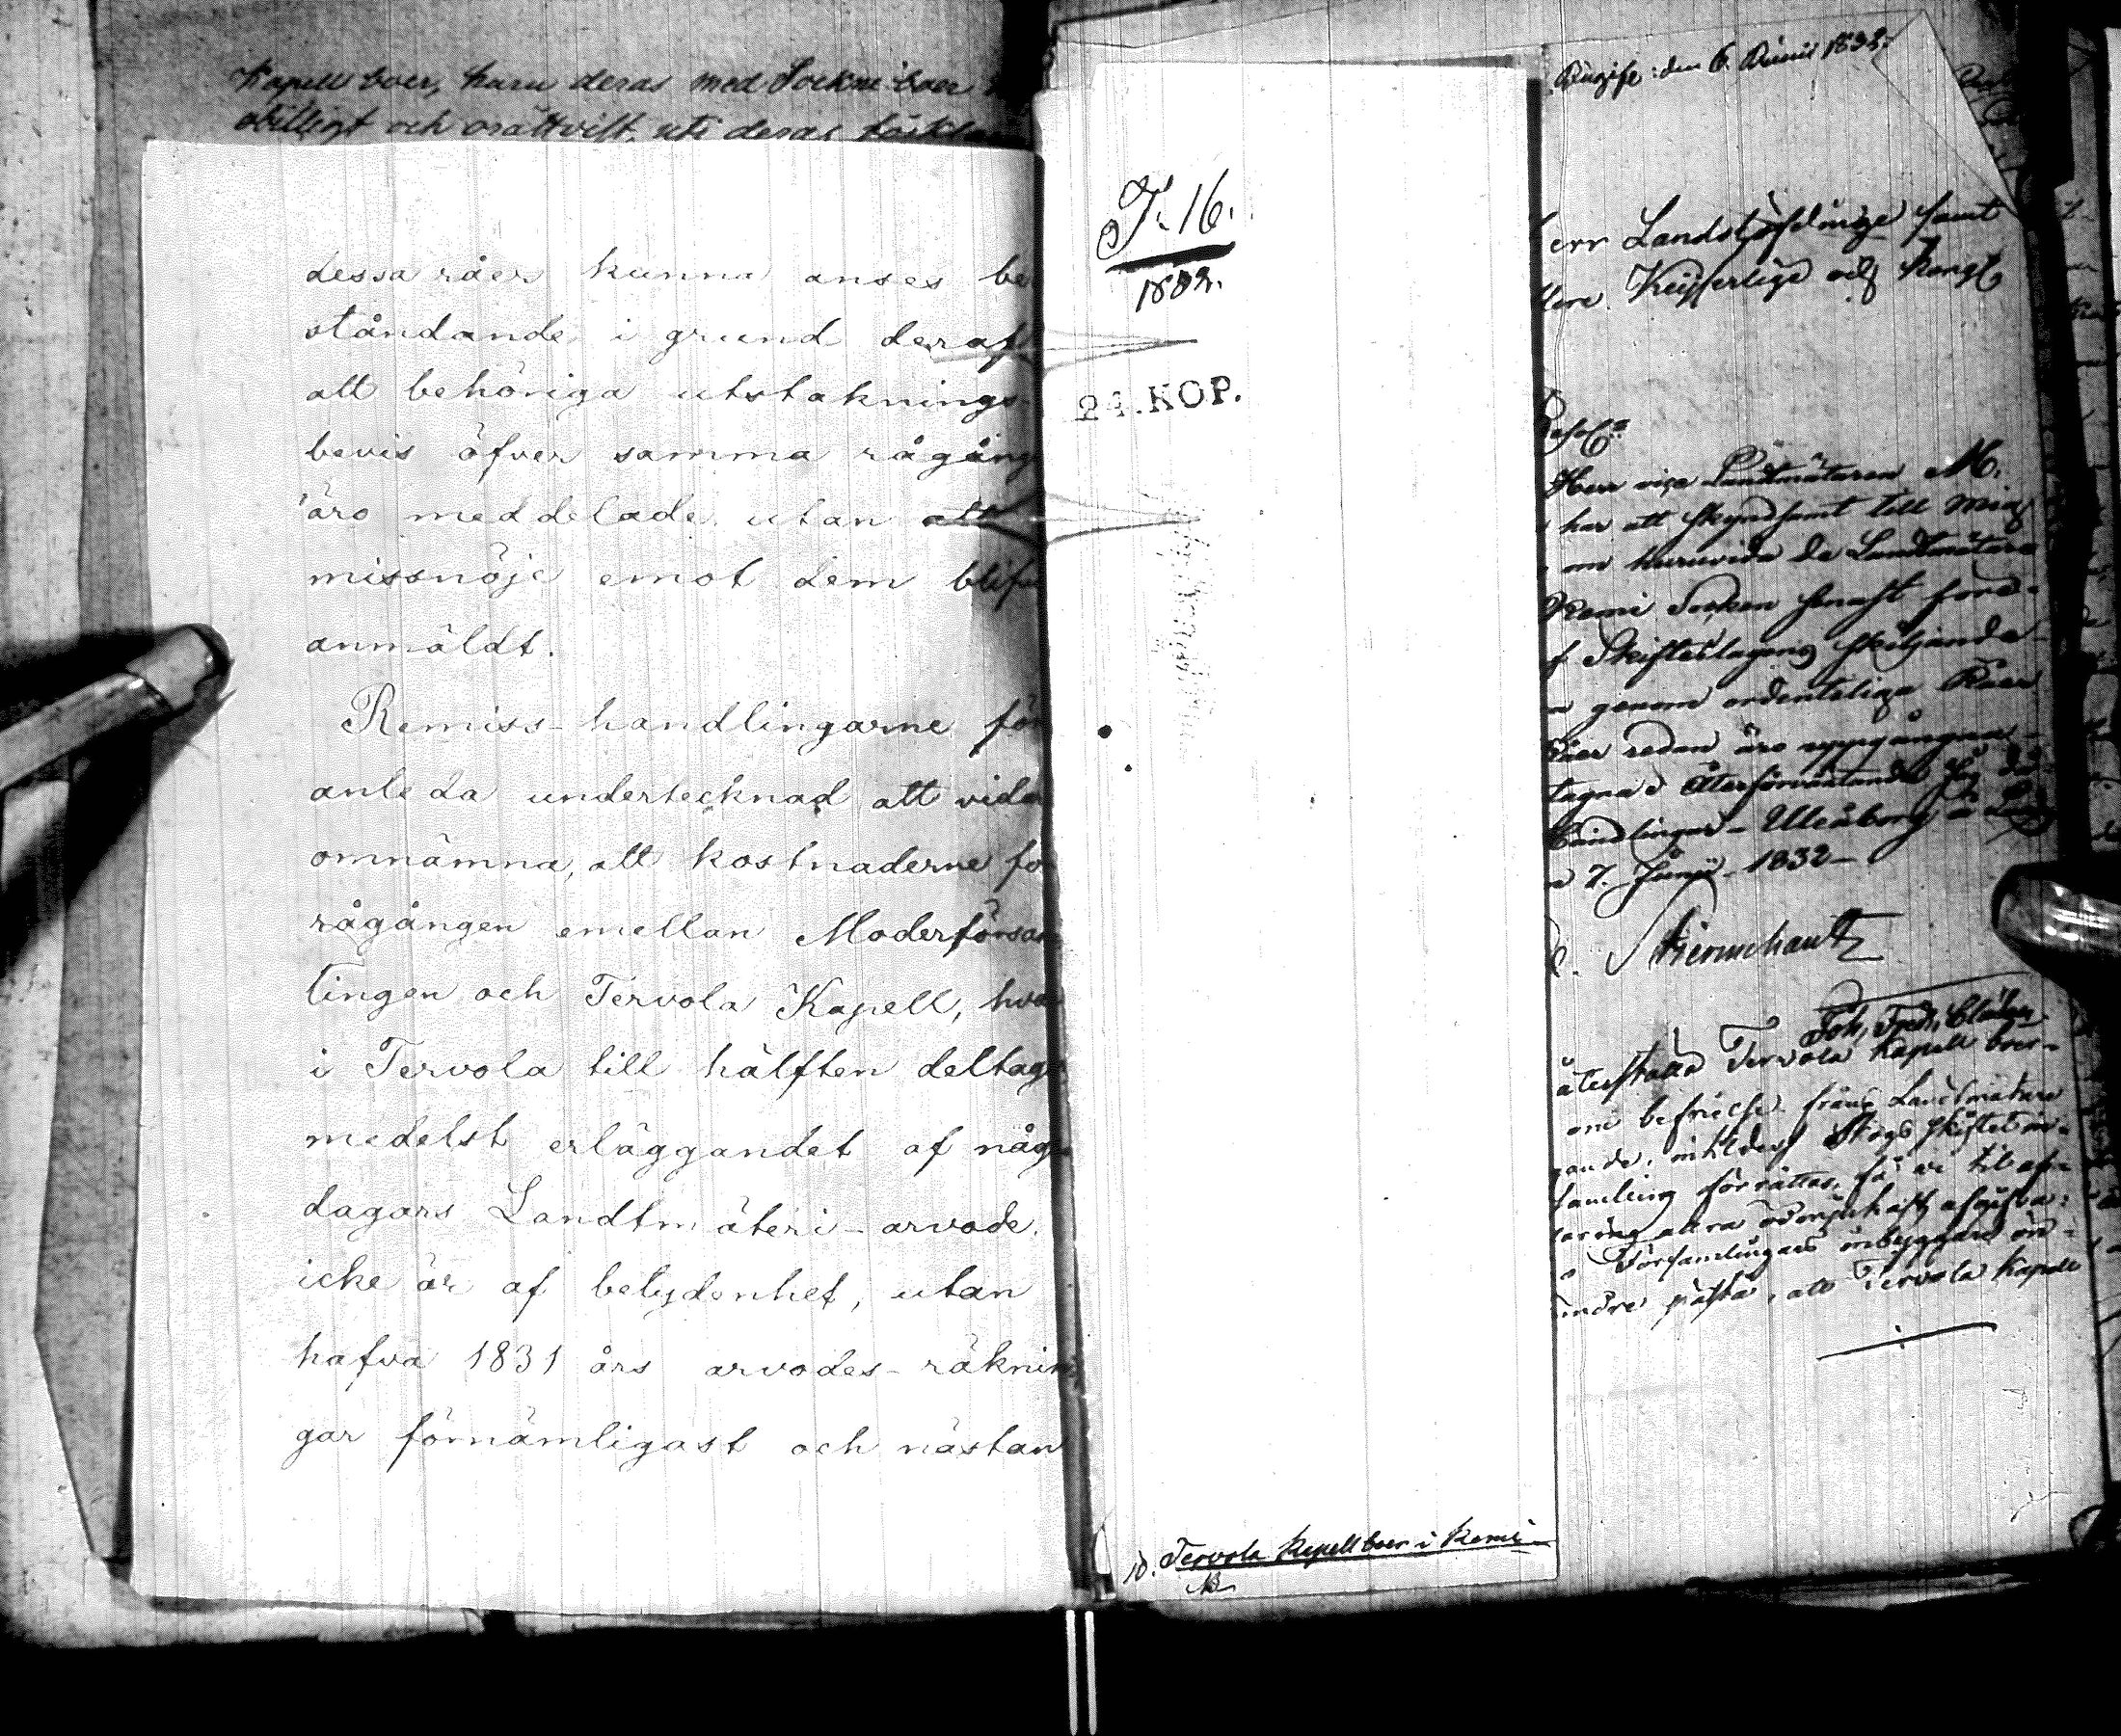 Kapell boer, huru deras med Sockne boer
obilligt och orättvist, uti deras
dessa råer kunna anses be
ståndande i grund deraf
att behöriga utstaknings-
bevis öfver samma rågång
äro meddelade, utan att
missnöje emot dem blifv
anmäldt.
Remiss-handlingarne för
anleda undertecknad att vidar
omnämna, att kostnaderne fö
rågången emellan Moderförsam
lingen och Tervola Kapell, hva
i Tervola till hälften deltag
medelst erläggandet af någr
dagars Landtmäteri-arvode,
icke är af betydenhet, utan
hafva 1831 års arvodes-räknin
gar förnämligast och nästan
T. 16.
1832.
24. KOP.
10. Tervola Kapellboer i Kemi
den 6. Junii 1832.
err Landshöfdinge samt
Keijserlige och Kongl.
Herr vice Landtmätaren M.
har att skyndsamt till mig
om huruvida de Landtmätare
Kemi Socken senast förd-
Skifteslagens skiljande
genom ordenteliga Råer
råer redan äro uppgångna
tagna. Återförväntande Jag de
handlingar. Uleåborg å Lands
n 7. Junii 1832
Stiernschantz
Joh. Fredr.
återställa Tervola Kapell boer-
om befrielse från Landtmätare
Skogs skiftet in-
samling förrättas, få vi til af-
Församlingens inbyggare
påstå, att Tervola Kapell